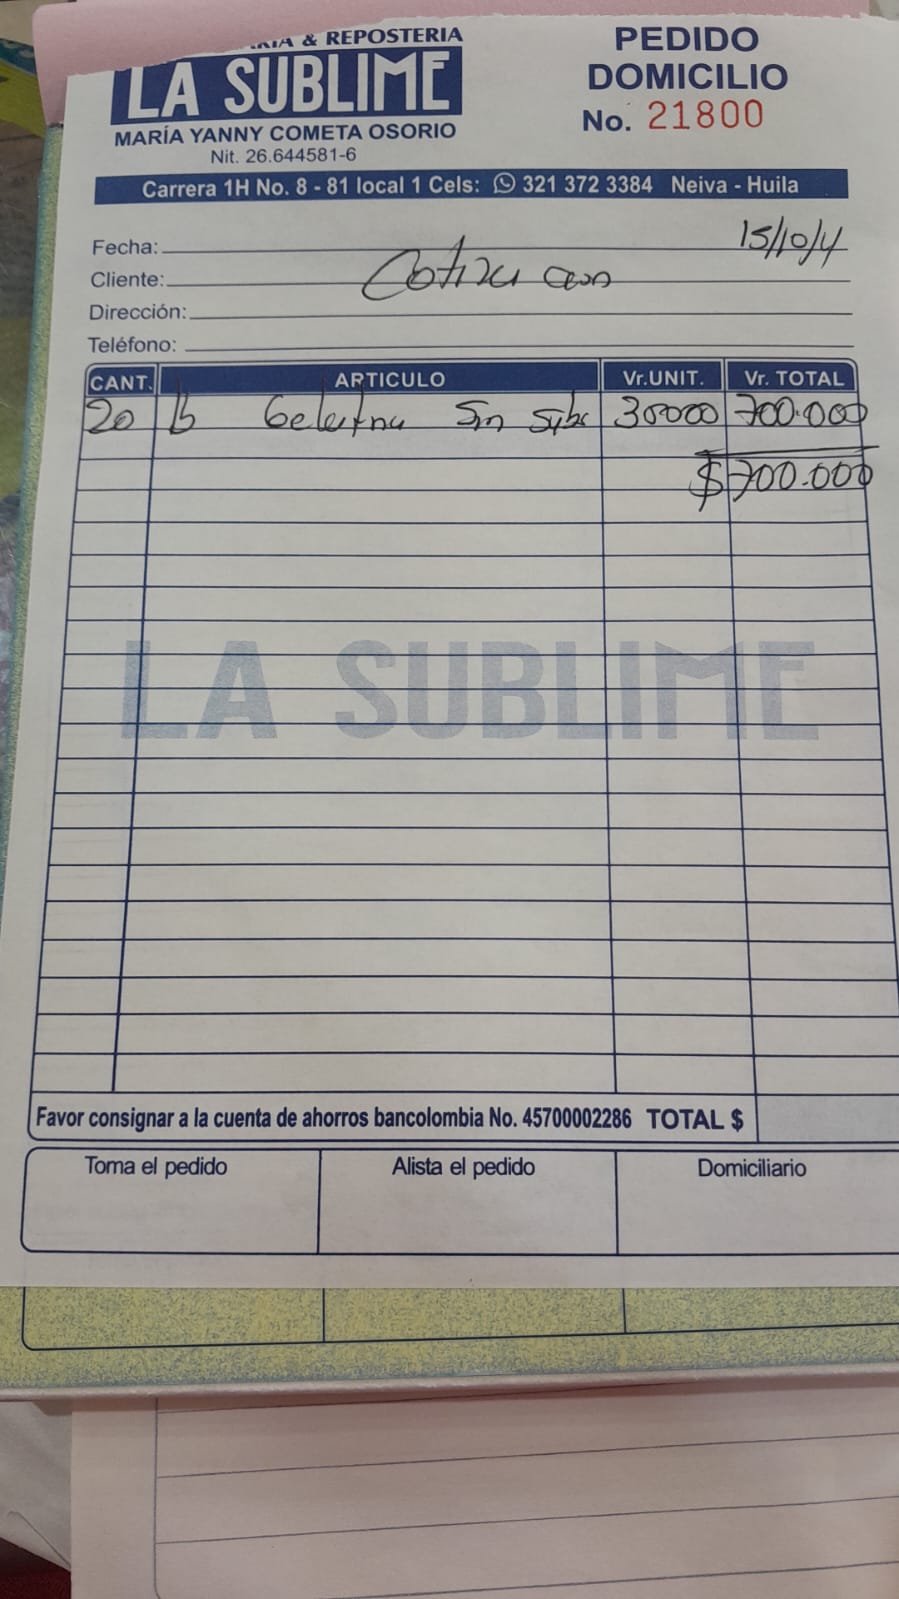 & REPOSTERIA
LA SUBLIME
MARÍA YANNY COMETA OSORIO
Nit. 26.644581-6
PEDIDO
DOMICILIO
No. 21800
Carrera 1H No. 8 - 81 local 1 Cels: 321 372 3384 Neiva - Huila
Fecha: 15/10/4
Cliente:
Dirección:
Teléfono:
CANT. ARTICULO Vr.UNIT. Vr. TOTAL
20 Sin 700.000
$700.000
LA SUBLIME
Favor consignar a la cuenta de ahorros bancolombia No. 45700002286 TOTAL $
Toma el pedido Alista el pedido Domiciliario